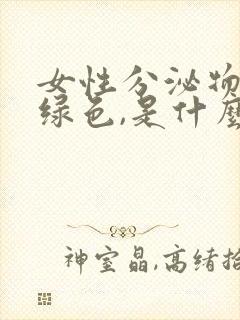 女性分泌物
绿色,是什麼
神室晶,高绪拾